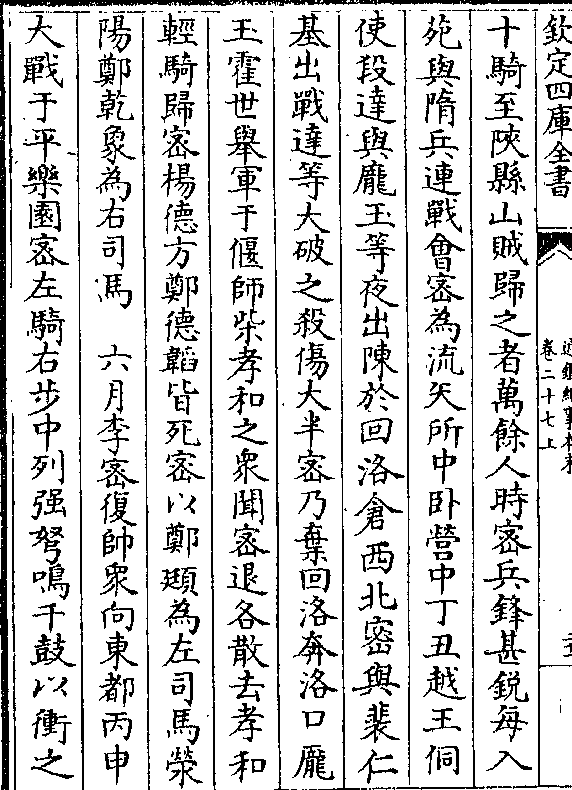 欽定四庫全書
卷二十七上
十騎至陜縣山賊歸之者萬餘人時密兵鋒甚銳每入
苑與隋兵連戰會密為流矢所中卧營中丁丑越王侗
使段達與龐玉等夜出陳於回洛倉西北密與裴仁
基出戰達等大破之殺傷大半密乃棄回洛奔洛口龐
玉霍世舉軍于偃師柴孝和之衆聞密退各散去孝和
輕騎歸密楊德方鄭德韜皆死密以鄭頲為左司馬滎
陽鄭乾象為右司馬　六月李密復帥衆向東都丙申
大戰于平樂園密左騎右步中列强弩鳴千鼓以衝之